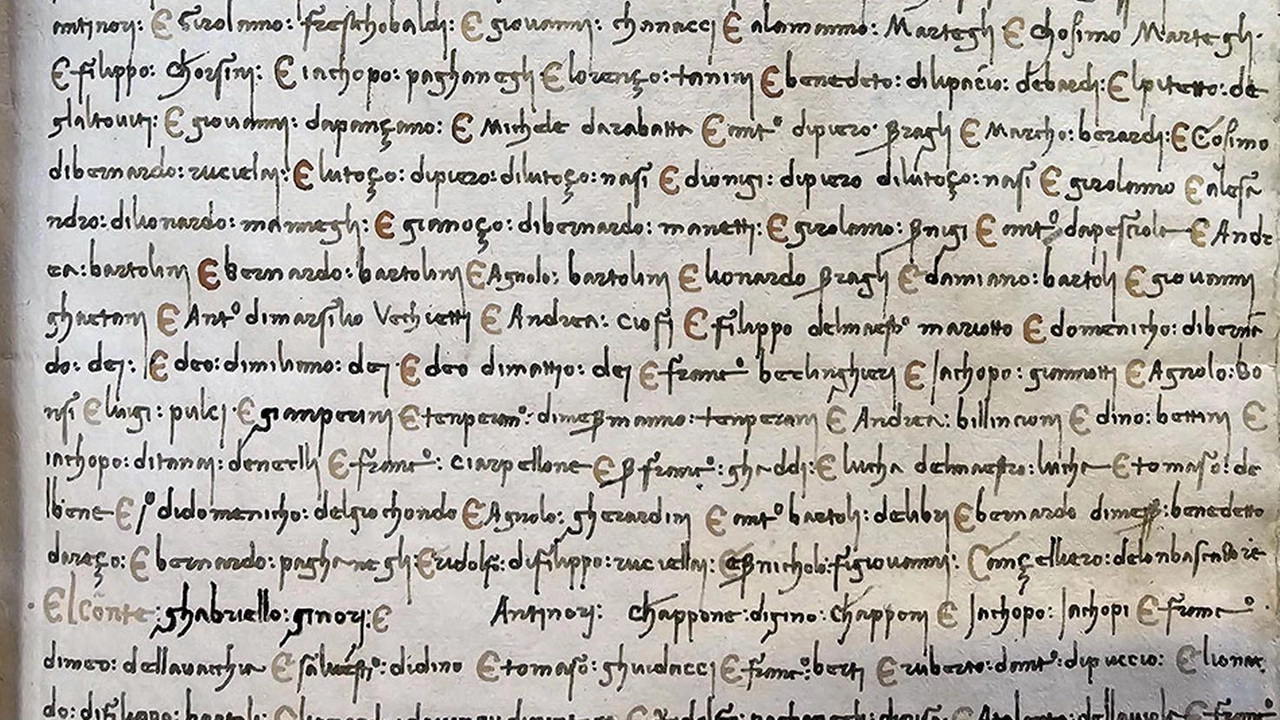 antinorj: E Girolamo: freschobaldj: E giovannj: chanaccj E alamanno: Marteghj E Chosimo Marteghj.
E filippo: Chorsinj: E iachopo: paghaneghj E lorenço: taninj E benedeto: di lipacio: debardj: E lpitetto: de
glaltovitj: E giovannj: dapançano: E Michele darabatta E antº dipiero: E Marcho: berardj: E Cosimo
dibernardo: rucielaj: E lutoço: dipiero: dilutoço: nasi E dionigi: dipiero dilutoço: nasi E girolamo E alesa
ndro: dilionardo: manneghj: E gianoço: dibernardo: manettj: E girolamo: E antº dapesciole E Andr
ea: bartolinj E Bernardo: bartolinj E Agnolo: bartolinj E lionardo E damiano: bartolj E giovannj
ghaetanj E Antº dimarsilio Vechiettj E Andrea: Ciofi E filippo delmaestº mariotto E domenicho: diberna
do: dej: E deo: dimiliano: dej E deo dimattio: dej E francº berlinghierj E Jachopo: giannottj E Agnolo: Bo
nsi E luigi: pulcj E gianperinj E tenperanº: manno: tenperanj E Andrea: billincionj E dino: bettinj E
iachopo: ditanaj: denerllj E francº: Ciarpellone E francº: ghaddj: E lucha delmaestro: lucha E tomaso: de
lbene E didomenicho: delgiochondo E Agnolo: gherardinj E antº bartolj: delibrj E bernardo benedetto
dareço: E bernardo: paghaneghj: E ridolfo: difilippo: ruciellaj: nicholo: figiovannj: Cançelliero: delonbasciadore
El conte: ghabriello: ginorj: E Antinorj: Chappone: digino: Chapponj E Jachopo: Jachopi E francº
dimeo: dellavachia E salvestº: didino E tomaso: ghuidaccj E francº: bertj E ruberto: dantº: dipuccio: E lionar
do: difilippo: bartolj: